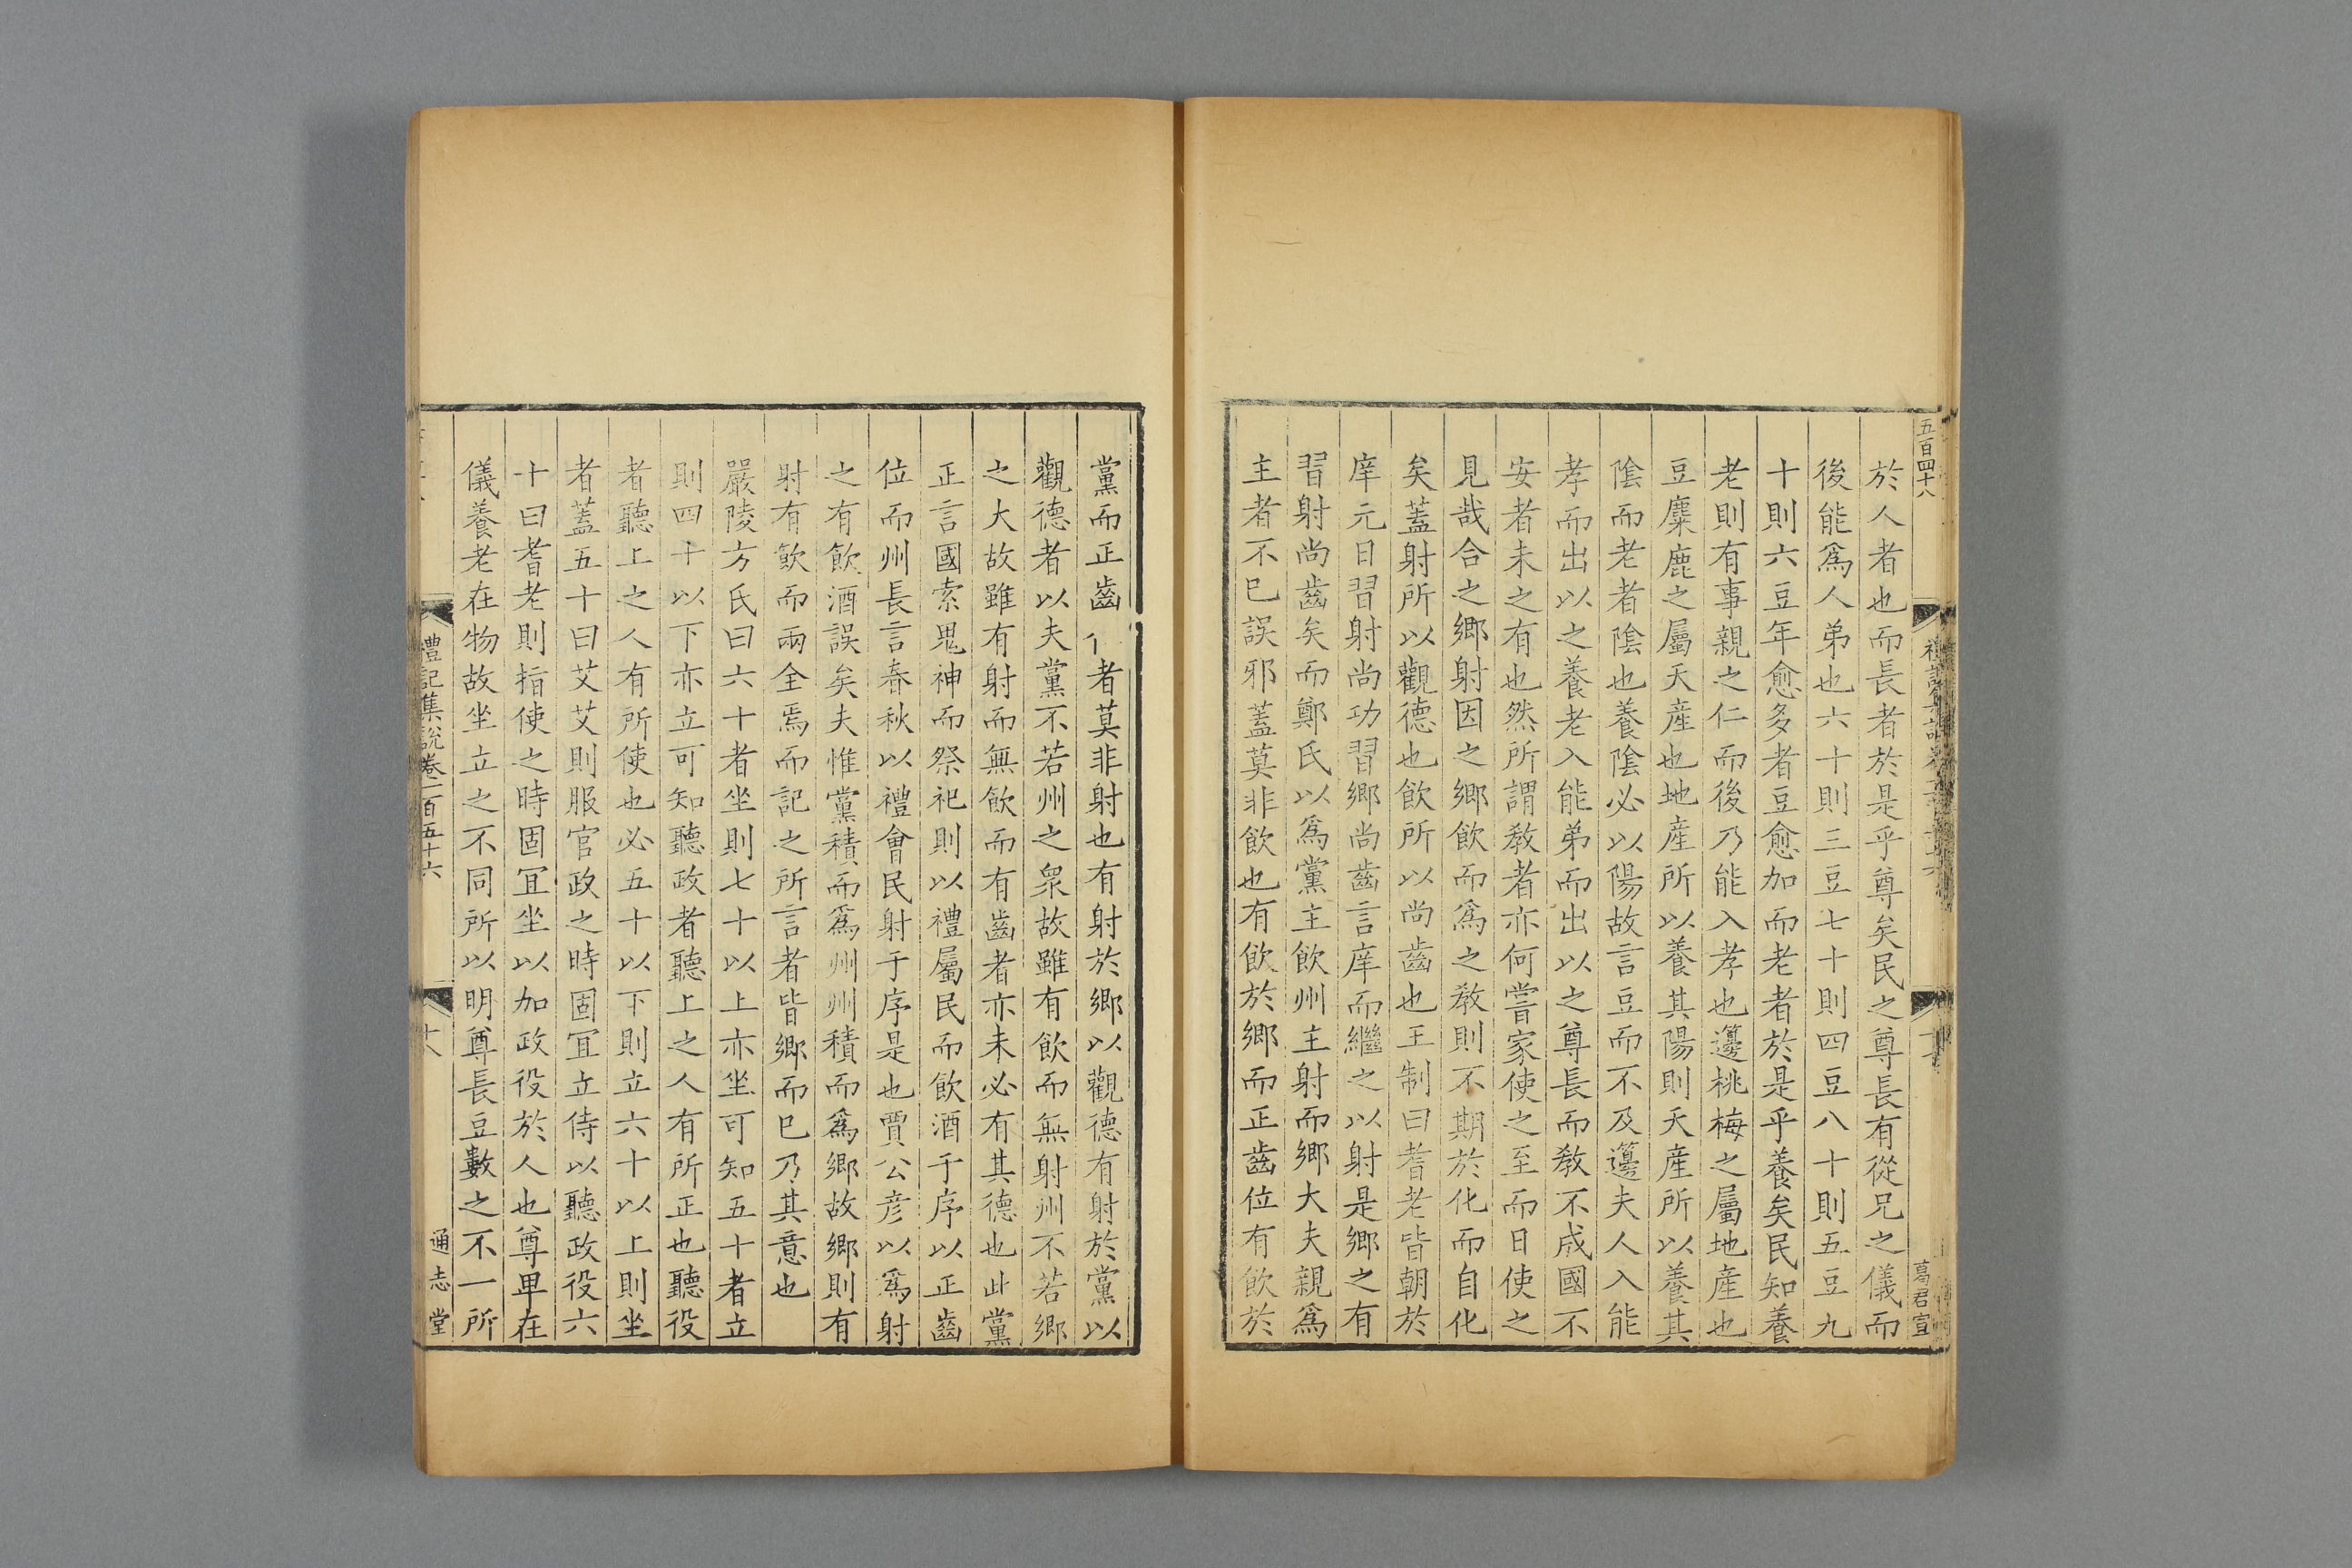 五百四十八
葛君宣
於人者也而長者於是乎尊矣民之尊長有從兄之儀而
後能爲人弟也六十則三豆七十則四豆八十則五豆九
十則六豆年愈多者豆愈加而老者於是乎養矣民知養
老則有事親之仁而後乃能入孝也籩桃梅之屬地產也
豆麋鹿之屬天產也地產所以養其陽則天產所以養其
陰而老者陰也養陰必以陽故言豆而不及籩夫人入能
孝而出以之養老入能弟而出以之尊長而敎不成國不
安者未之有也然所謂敎者亦何嘗家使之至而日使之
見哉合之鄉射因之鄉飮而爲之敎則不期於化而自化
矣蓋射所以觀德也飮所以尚齒也王制曰耆老皆朝於
庠元日習射尚功習鄉尚齒言庠而繼之以射是鄉之有
習射尚齒矣而鄭氏以爲黨主飮州主射而鄉大夫親爲
主者不已誤邪蓋莫非飮也有飮於鄉而正齒位有飮於
黨而正齒者莫非射也有射於鄉以觀德有射於黨以
觀德者以夫黨不若州之衆故雖有飮而無射州不若鄉
之大故雖有射而無飮而有齒者亦未必有其德也此黨
正言國索鬼神而祭祀則以禮屬民而飮酒于序以正齒
位而州長言春秋以禮會民射于序是也賈公彥以爲射
之有飮酒誤矣夫惟黨積而爲州州積而爲鄉故鄉則有
射有飮而兩全焉而記之所言者皆鄉而已乃其意也
嚴陵方氏曰六十者坐則七十以上亦坐可知五十者立
則四十以下亦立可知聽政者聽上之人有所正也聽役
者聽上之人有所使也必五十以下則立六十以上則坐
者蓋五十曰艾艾則服官政之時固宜立侍以聽政役六
十曰耆老則指使之時固宜坐以加政役於人也尊卑在
儀養老在物故坐立之不同所以明尊長豆數之不一所
禮記集說卷一百五十六
十八
通志堂